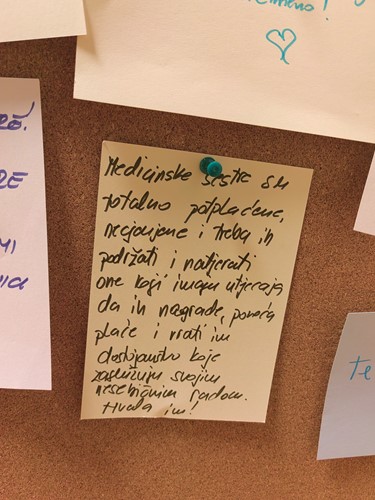 Medicinske sestre su
totalno potplaćene,
necjenjene i treba ih
podržati i natjerati
one koji imaju utjecaja
da ih nagrade, poveća
plaće i vrati im
dostojanstvo koje
zaslužuju svojim
nesebičnim radom.
Hvala im!
Te